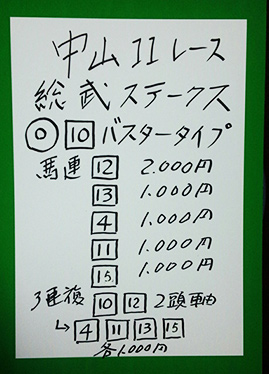 中山11レース
総武ステークス
◎ 10 バスタータイプ
馬連 12 2.000円
13 1.000円
4 1.000円
11 1.000円
15 1.000円
3連復 10 12 2頭軸
↳ 4 11 13 15
各1.000円